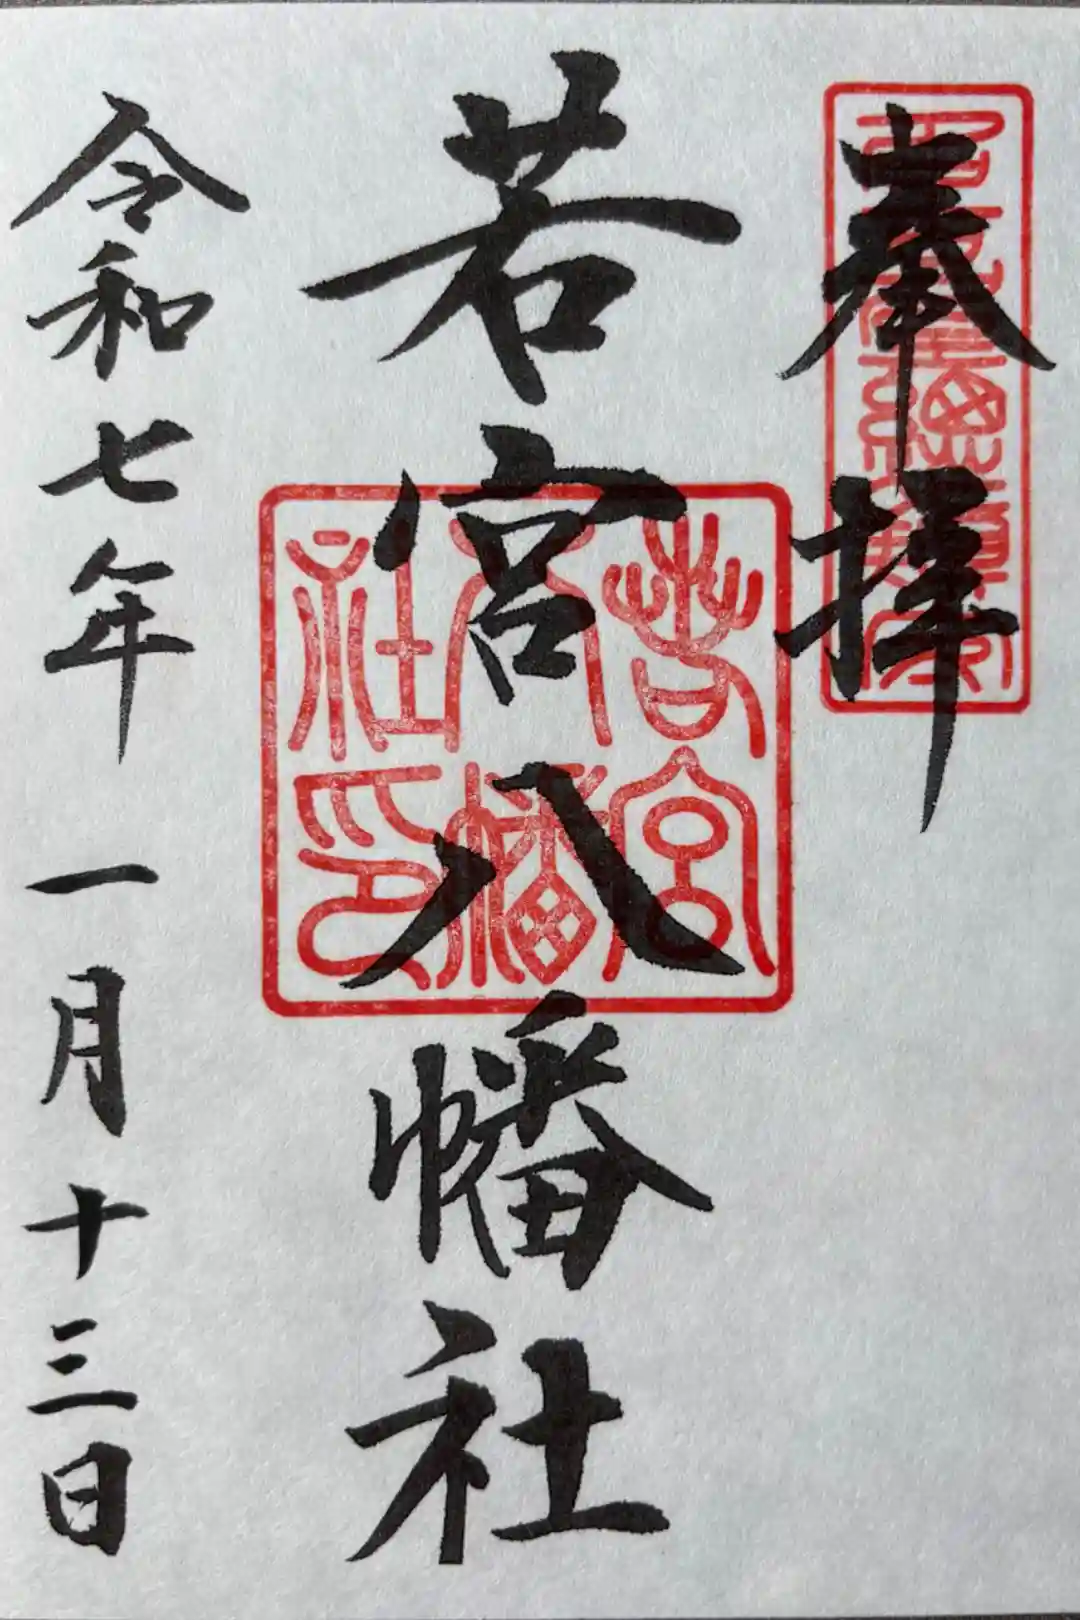 奉拝
若宮八幡社
若宮八幡社印
令和七年一月十三日